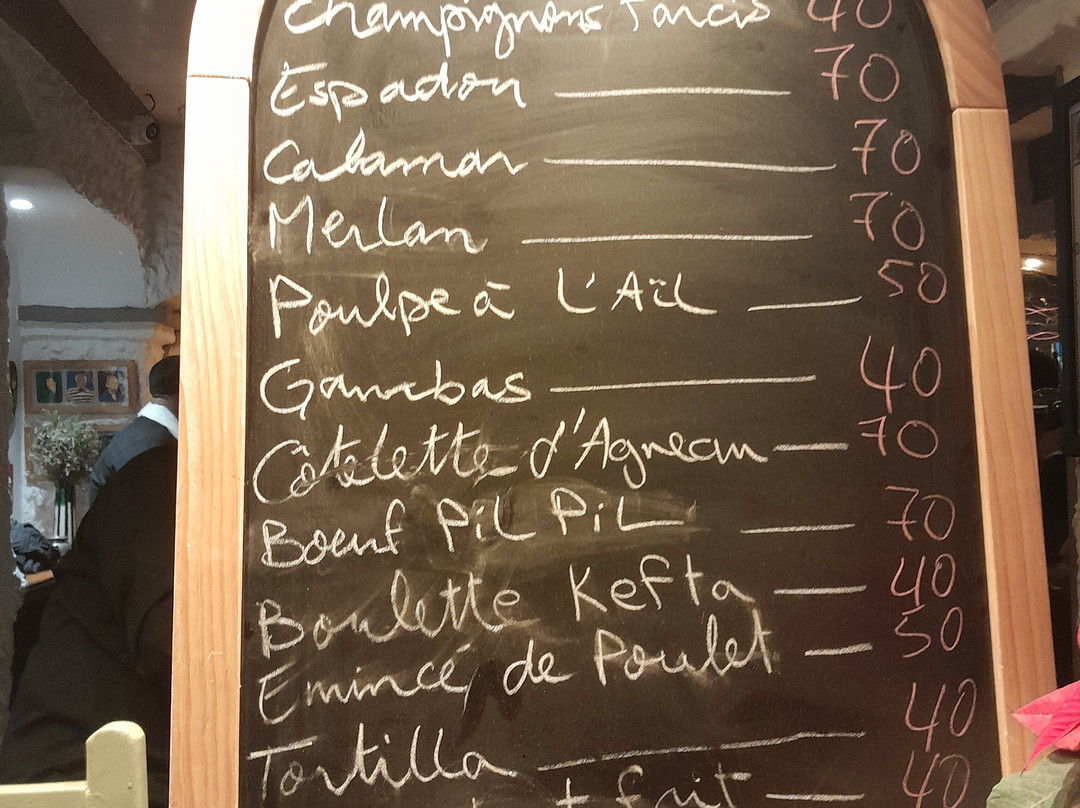 Champignons Farcis 40
Espadon 70
Calamar 70
Merlan 70
Poulpe à L'Aïl 50
Gambas 40
Côtelette d'Agneau 70
Bœuf PiL PiL 70
Boulette Kefta 40
Emincé de Poulet 50
Tortilla 40
frit 40